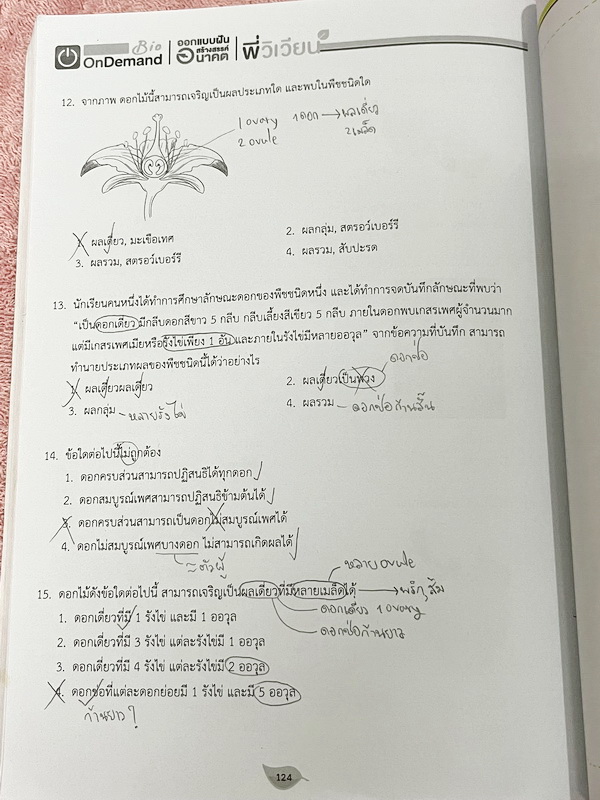 Bio
OnDemand
ออกแบบฝัน
สร้างสรรค์
อนาคต
พี่วิเวียน
12. จากภาพ ดอกไม้นี้สามารถเจริญเป็นผลประเภทใด และพบในพืชชนิดใด
1 ovary 1 ดอก → ผลเดี่ยว
2 ovule 2 เมล็ด
1. ผลเดี่ยว, มะเขือเทศ
2. ผลกลุ่ม, สตรอว์เบอร์รี
3. ผลรวม, สตรอว์เบอร์รี
4. ผลรวม, สับปะรด
13. นักเรียนคนหนึ่งได้ทำการศึกษาลักษณะดอกของพืชชนิดหนึ่ง และได้ทำการจดบันทึกลักษณะที่พบว่า
"เป็นดอกเดี่ยว มีกลีบดอกสีขาว 5 กลีบ กลีบเลี้ยงสีเขียว 5 กลีบ ภายในดอกพบเกสรเพศผู้จำนวนมาก
แต่มีเกสรเพศเมียหรือรังไข่เพียง 1 อัน และภายในรังไข่มีหลายออวุล" จากข้อความที่บันทึก สามารถ
ทำนายประเภทผลของพืชชนิดนี้ได้ว่าอย่างไร
ดอกช่อ
1. ผลเดี่ยวผลเดี่ยว
2. ผลเดี่ยวเป็นพวง
3. ผลกลุ่ม ~ หลายรังไข่
4. ผลรวม ~ ดอกช่อก้านสั้น
14. ข้อใดต่อไปนี้ไม่ถูกต้อง
1. ดอกครบส่วนสามารถปฏิสนธิได้ทุกดอก
2. ดอกสมบูรณ์เพศสามารถปฏิสนธิข้ามต้นได้
3. ดอกครบส่วนสามารถเป็นดอกไม่สมบูรณ์เพศได้
4. ดอกไม่สมบูรณ์เพศบางดอก ไม่สามารถเกิดผลได้
ตัวผู้
หลาย ovule
15. ดอกไม้ดังข้อใดต่อไปนี้ สามารถเจริญเป็นผลเดี่ยวที่มีหลายเมล็ดได้ → พริก, ส้ม
ดอกเดี่ยว 1 ovary
ดอกช่อก้านยาว
1. ดอกเดี่ยวที่มี 1 รังไข่ และมี 1 ออวุล
2. ดอกเดี่ยวที่มี 3 รังไข่ แต่ละรังไข่มี 1 ออวุล
3. ดอกเดี่ยวที่มี 4 รังไข่ แต่ละรังไข่มี 2 ออวุล
4. ดอกช่อที่แต่ละดอกย่อยมี 1 รังไข่ และมี 5 ออวุล
ก้านยาว ?
124